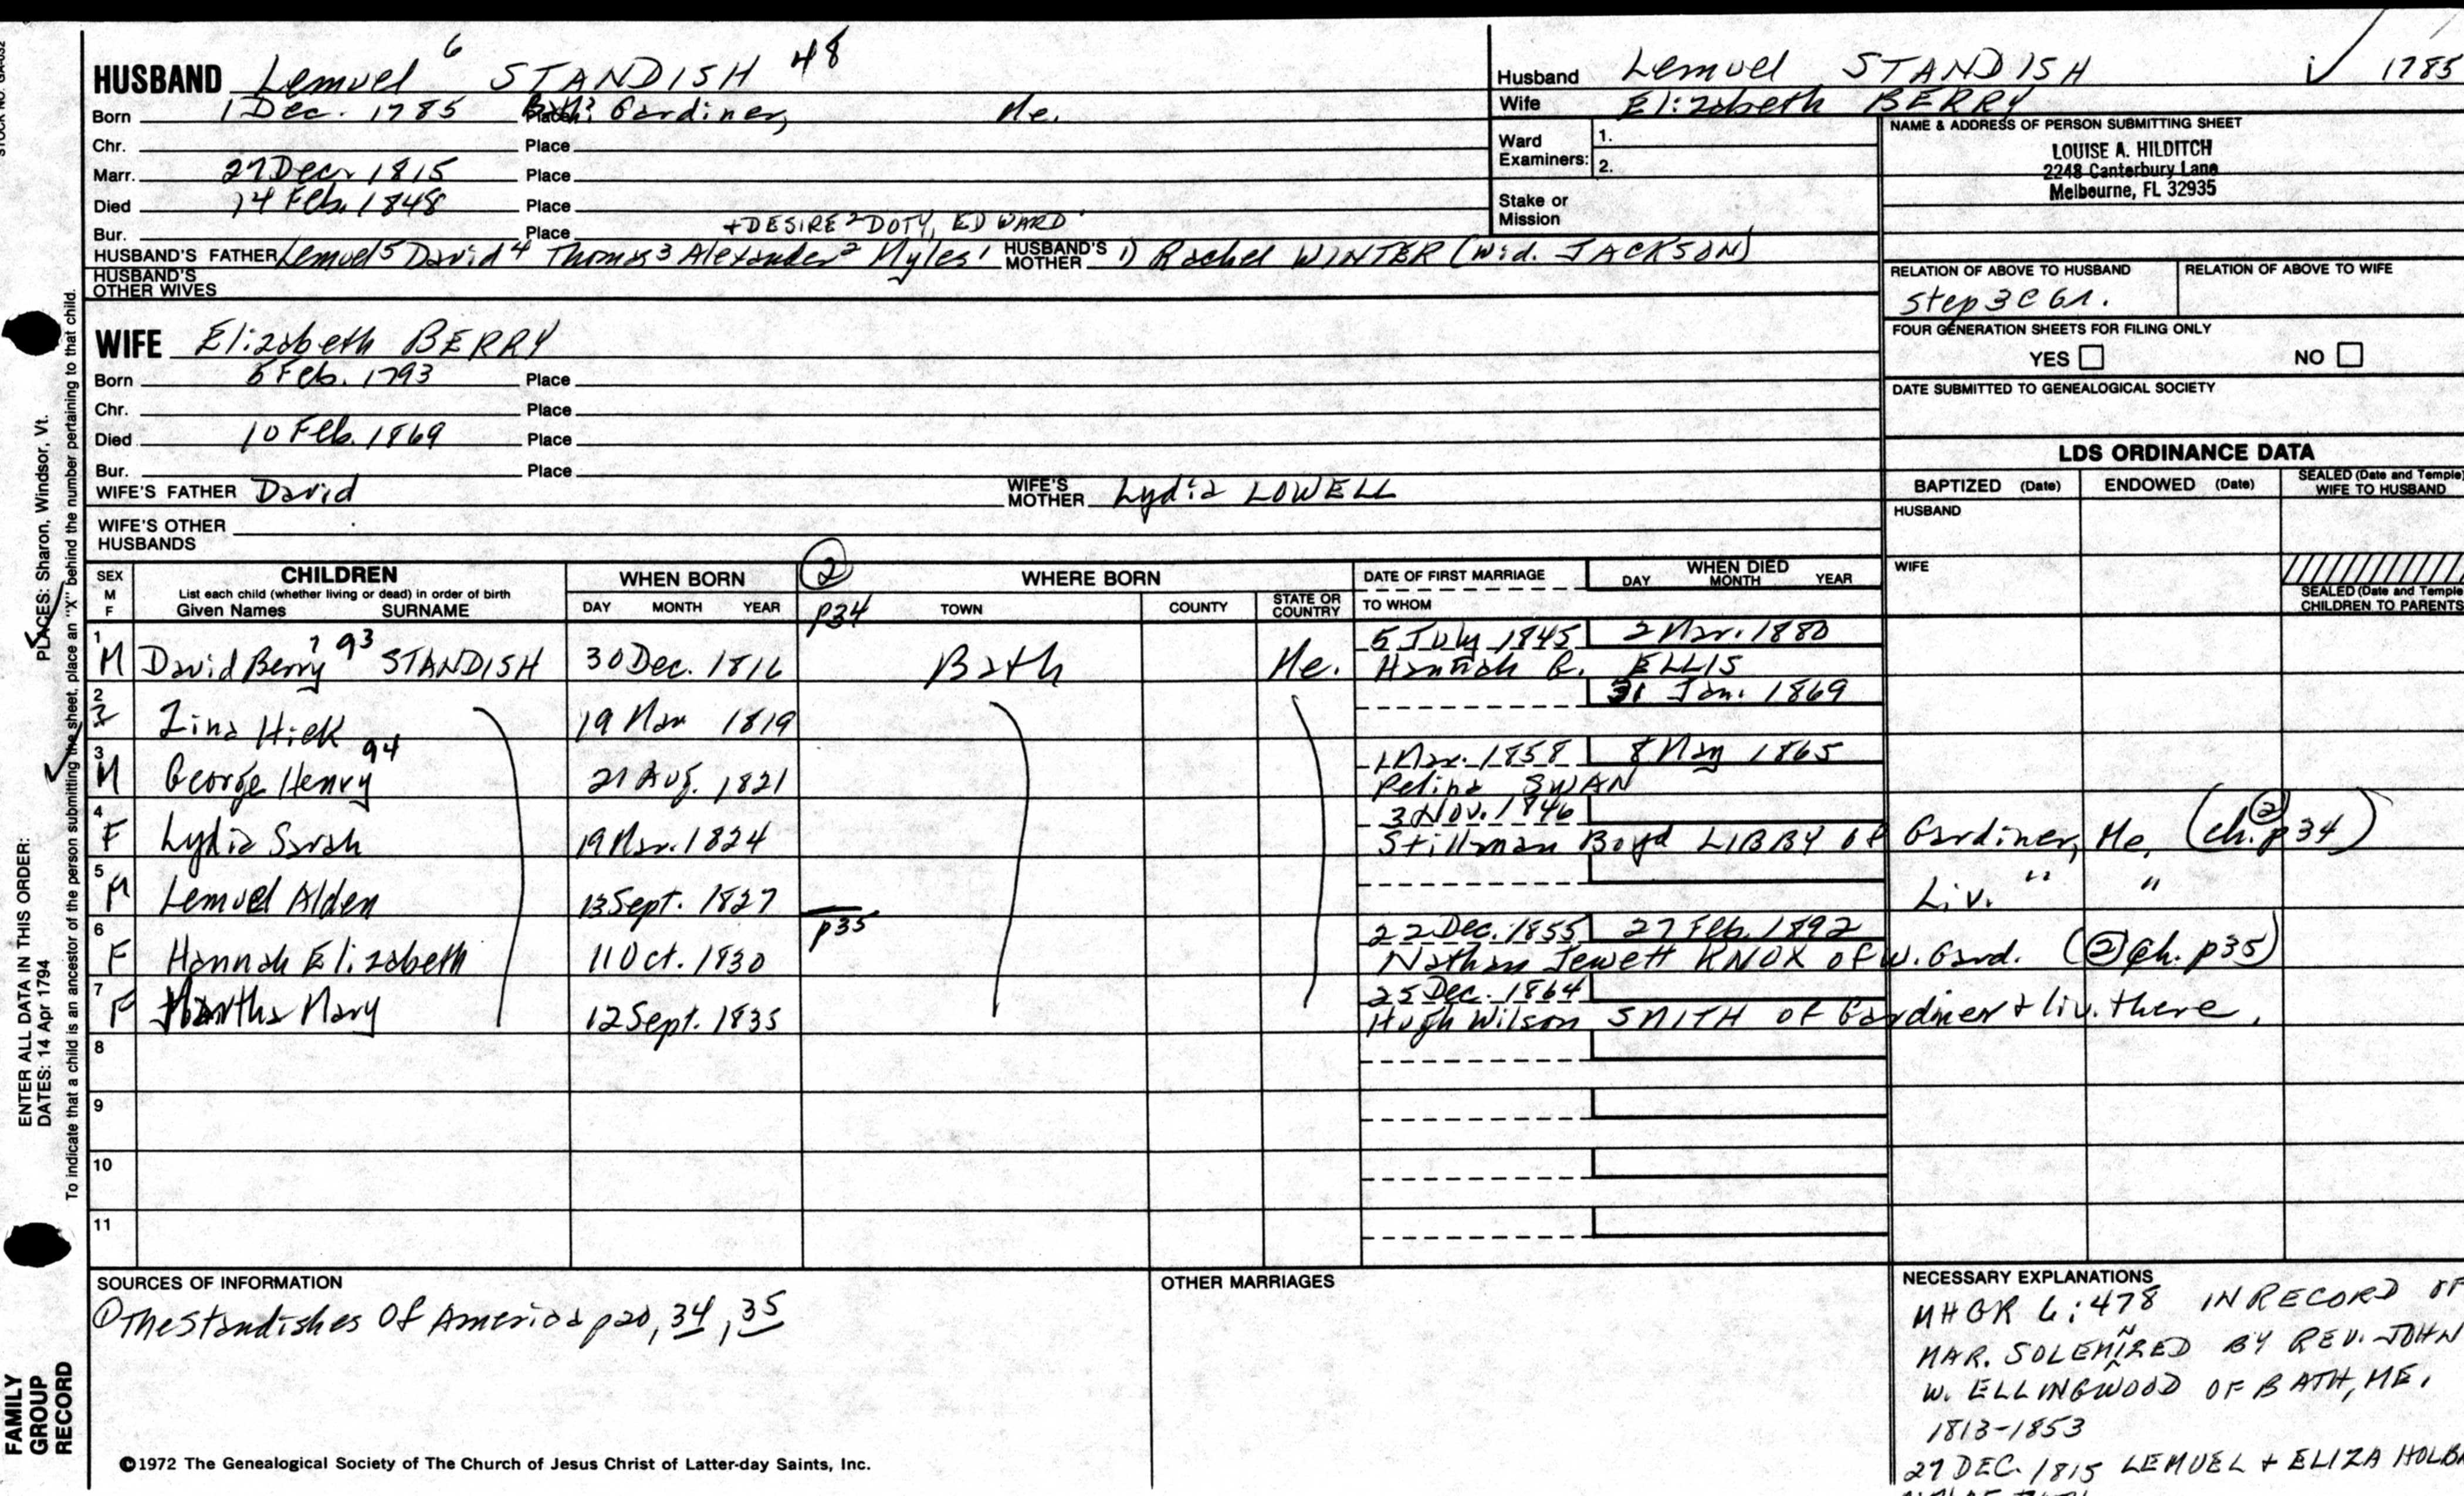 HUSBAND Lemuel 6 STANDISH 48
Born 1 Dec. 1785 Place Gardiner, Me.
Chr. Place
Marr. 27 Dec. 1815 Place
Died 14 Feb. 1848 Place
Bur. Place +DESIRE 2 DOTY, EDWARD 1
HUSBAND'S FATHER Lemuel 5 David 4 Thomas 3 Alexander 2 Myles 1 HUSBAND'S MOTHER 1) Rachel WINTER (wid. JACKSON)
HUSBAND'S OTHER WIVES
WIFE Elizabeth BERRY
Born Feb. 1793 Place
Chr. Place
Died 10 Feb. 1869 Place
Bur. Place
WIFE'S FATHER David WIFE'S MOTHER Lydia LOWELL
WIFE'S OTHER HUSBANDS
Husband Lemuel STANDISH 1785
Wife Elizabeth BERRY
Ward Examiners: 1.
2.
Stake or Mission
NAME & ADDRESS OF PERSON SUBMITTING SHEET
LOUISE A. HILDITCH
2248 Canterbury Lane
Melbourne, FL 32935
RELATION OF ABOVE TO HUSBAND RELATION OF ABOVE TO WIFE
Step 3C 6r.
FOUR GENERATION SHEETS FOR FILING ONLY
YES NO
DATE SUBMITTED TO GENEALOGICAL SOCIETY
LDS ORDINANCE DATA
BAPTIZED (Date) ENDOWED (Date) SEALED (Date and Temple) WIFE TO HUSBAND
HUSBAND
WIFE
SEALED (Date and Temple CHILDREN TO PARENTS
SEX M F CHILDREN WHEN BORN 2 WHERE BORN DATE OF FIRST MARRIAGE WHEN DIED
List each child (whether living or dead) in order of birth DAY MONTH YEAR
Given Names SURNAME DAY MONTH YEAR p34 TOWN COUNTY STATE OR COUNTRY TO WHOM
1 5 July 1845 2 Mar. 1880
M David Berry 7 93 STANDISH 30 Dec. 1816 Bath Me. Hannah ELLIS
2 31 Jan. 1869
Zina 19 Mar 1819
3 1 Mar. 1858 8 May 1865
M George Henry 94 21 Aug. 1821 SWAN
4 3 Nov. 1846
F Lydia Sarah 19 Mar. 1824 Stillman Boyd LIBBY of Gardiner, Me. (2 ch. p34)
5
M Lemuel Alden 13 Sept. 1827 Liv. " "
6 p35 22 Dec. 1855 27 Feb. 1892
F Hannah Elizabeth 11 Oct. 1830 Nathan Jewett KNOX of W. Gard. (2 ch. p35)
7 25 Dec. 1864
F Martha Mary 12 Sept. 1835 Hugh Wilson SMITH of Gardiner & liv. there.
8
9
10
11
SOURCES OF INFORMATION
1 The Standishes Of America p20, 34, 35
OTHER MARRIAGES
NECESSARY EXPLANATIONS
MHGR 6:478 IN RECORD OF
MAR. SOLEMNIZED BY REV. JOHN
W. ELLINGWOOD OF BATH, ME.
1813-1853
27 DEC. 1815 LEMUEL & ELIZA
©1972 The Genealogical Society of The Church of Jesus Christ of Latter-day Saints, Inc.
ENTER ALL DATA IN THIS ORDER: PLACES: Sharon, Windsor, Vt.
DATES: 14 Apr 1794
To indicate that a child is an ancestor of the person submitting the sheet, place an "X" behind the number pertaining to that child.
FAMILY
GROUP
RECORD